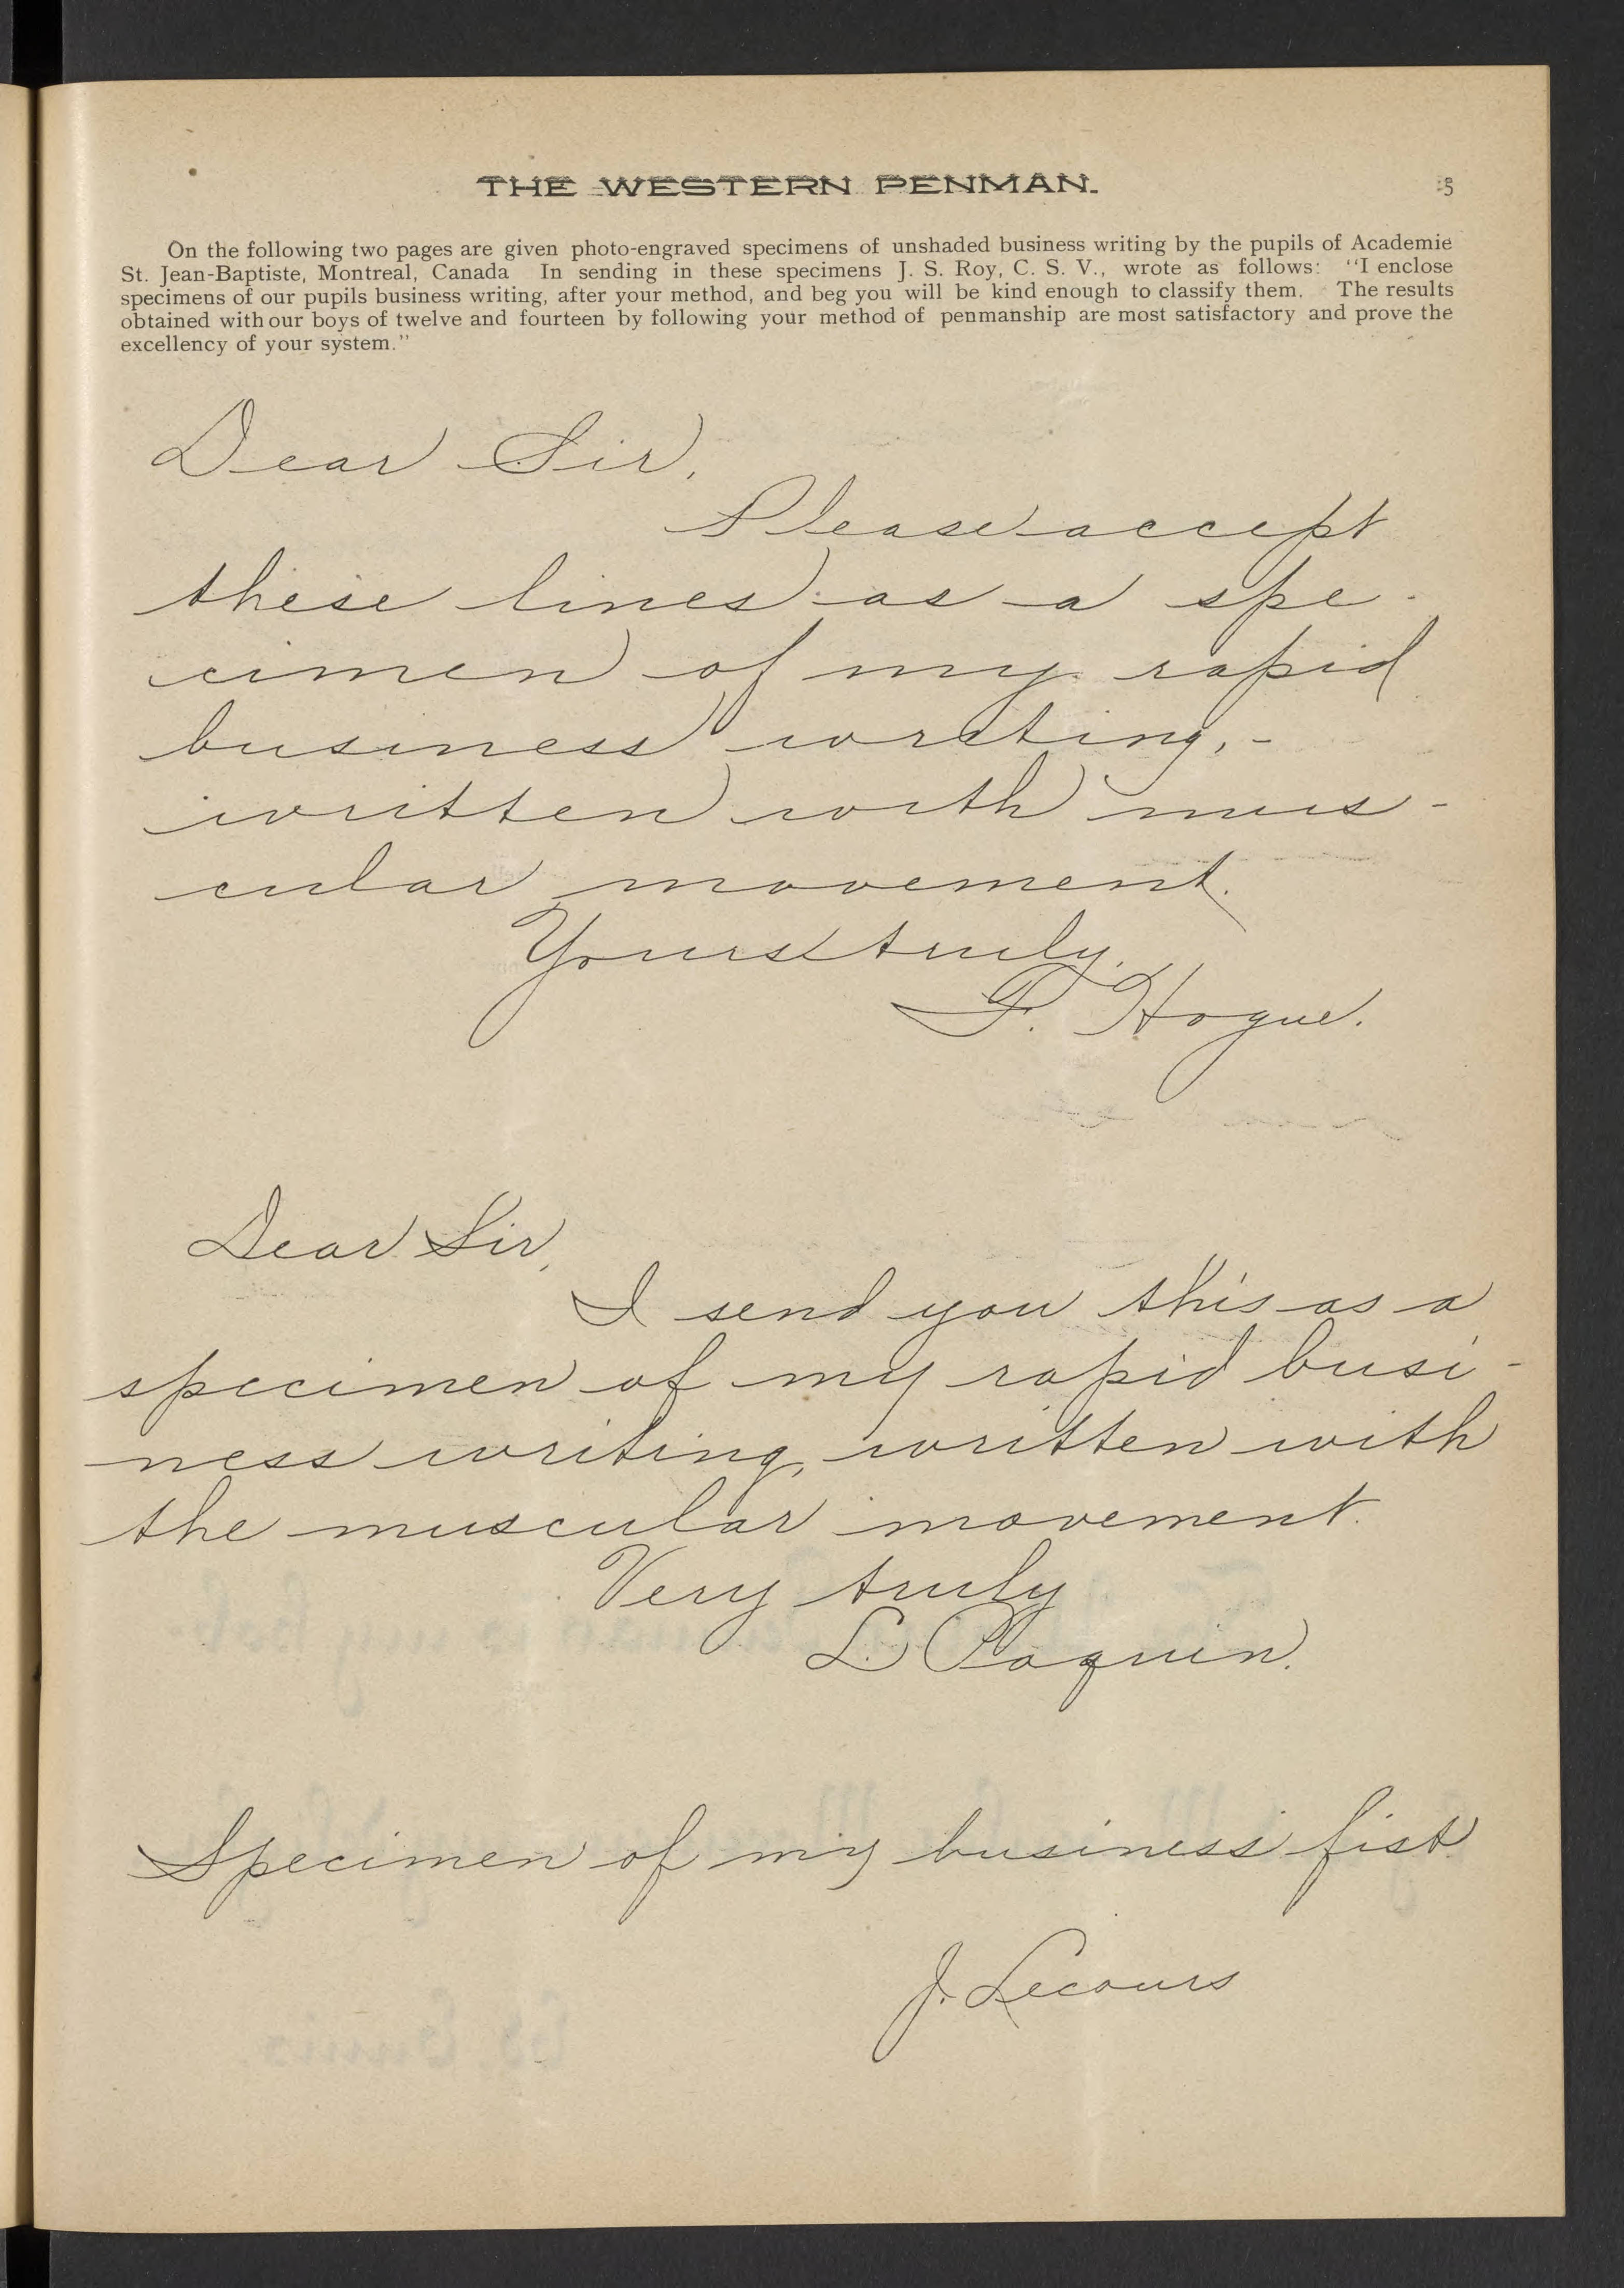 THE WESTERN PENMAN. 5
On the following two pages are given photo-engraved specimens of unshaded business writing by the pupils of Academie
St. Jean-Baptiste, Montreal, Canada In sending in these specimens J. S. Roy, C. S. V., wrote as follows: "I enclose
specimens of our pupils business writing, after your method, and beg you will be kind enough to classify them. The results
obtained with our boys of twelve and fourteen by following your method of penmanship are most satisfactory and prove the
excellency of your system."
Dear Sir,
Please accept
these lines as a spe-
cimen of my rapid
business writing,-
written with mus-
cular movement.
Yours truly.
F. Hogue.
Dear Sir,
I send you this as a
specimen of my rapid busi-
ness writing, written with
the muscular movement.
Very truly
L. Paquin.
Specimen of my business fist.
J. Lecours